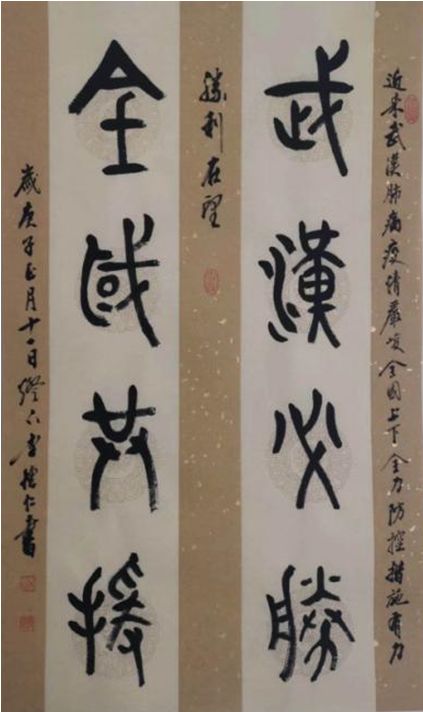 近来武漢肺病疫情嚴峻全国上下全力防控措施有力
武漢必勝
勝利在望
全國共援
歲庚子正月十一日燈下李仁書